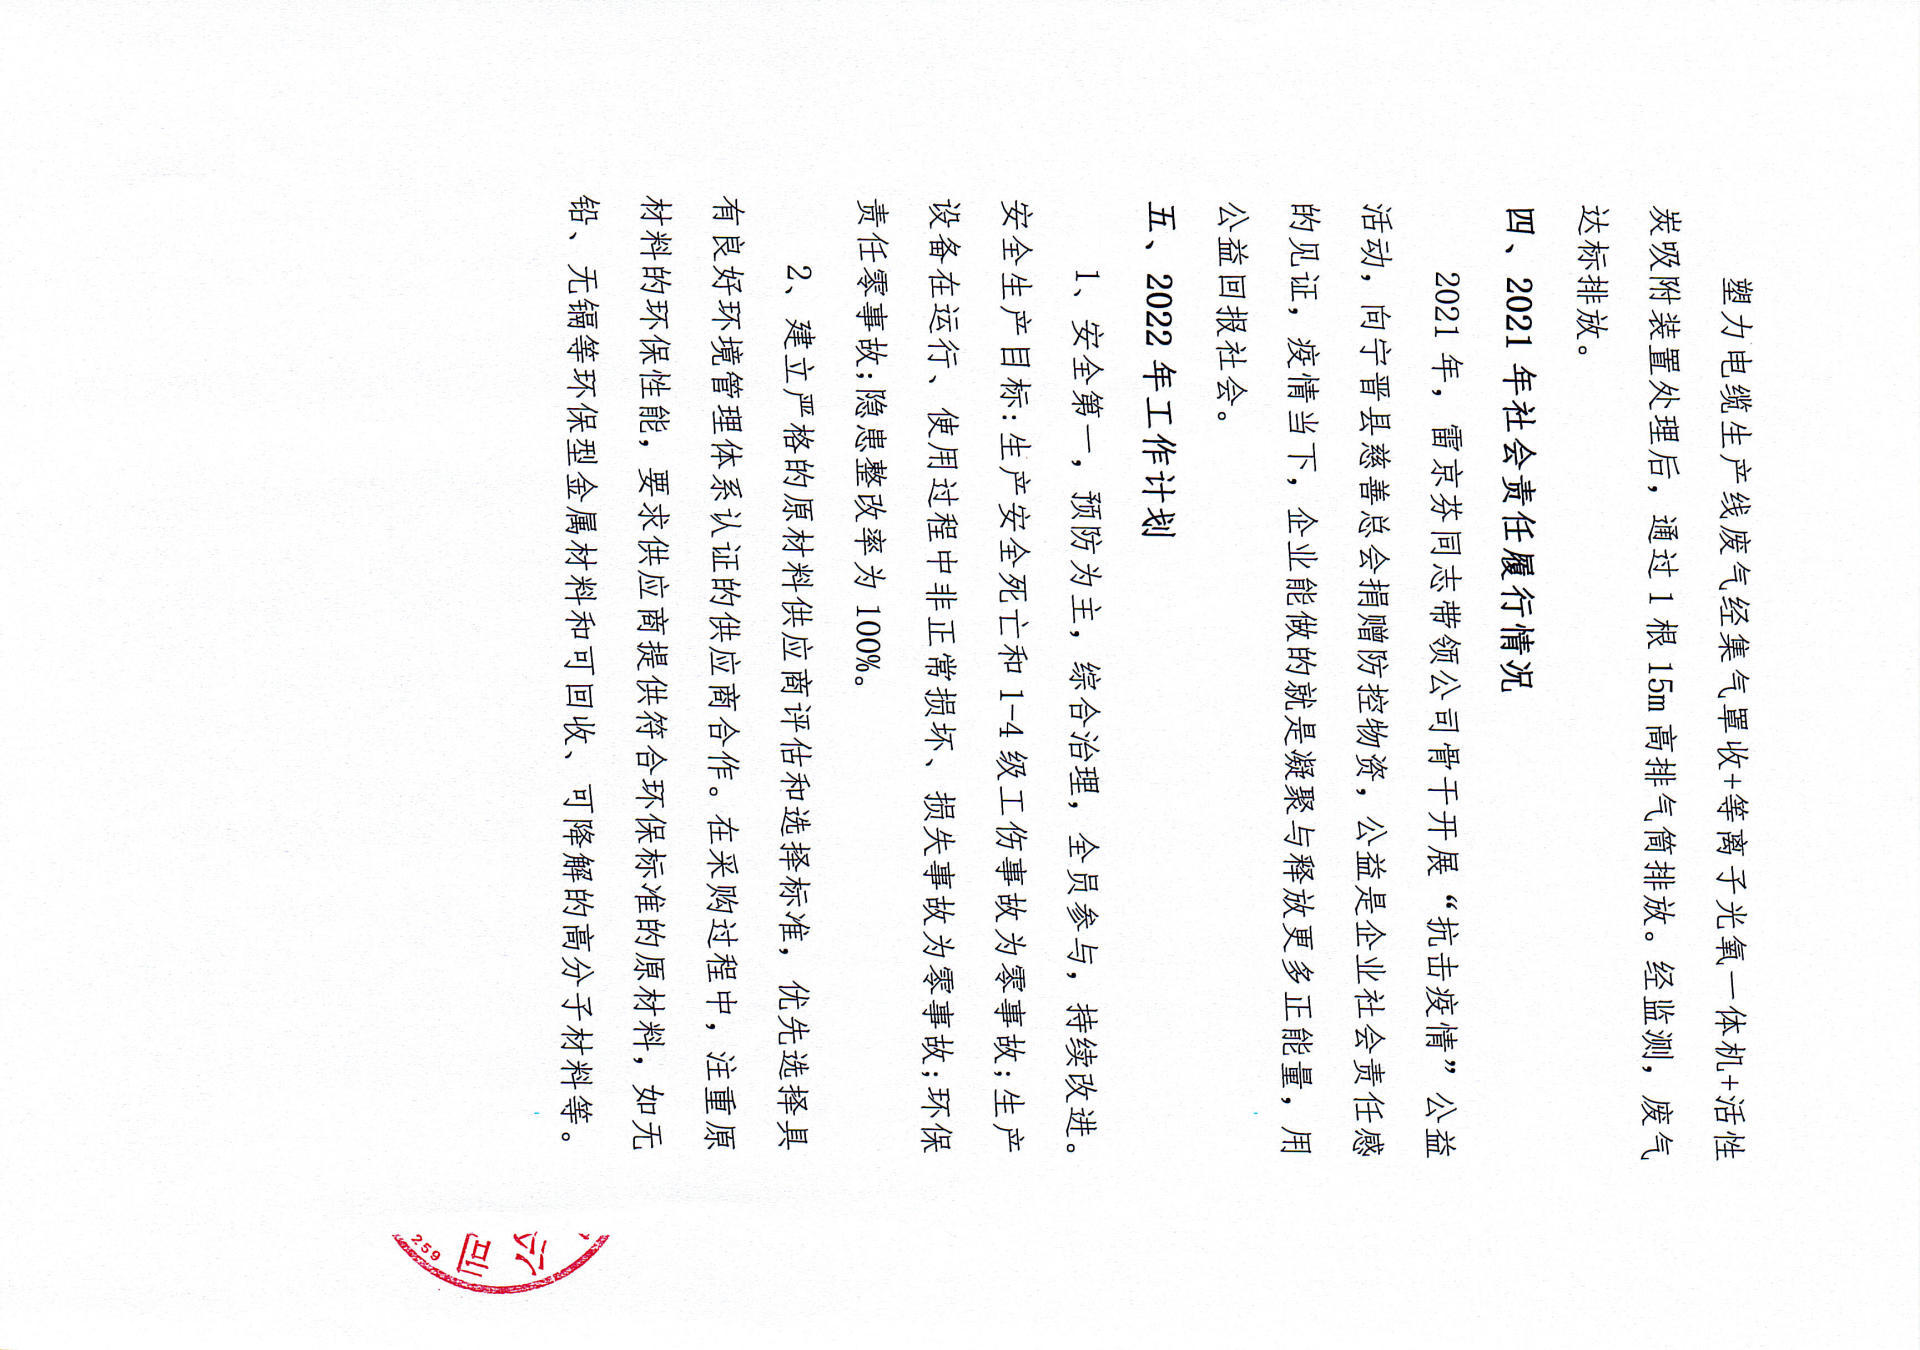 塑力电缆生产线废气经集气罩收+等离子光氧一体机+活性
炭吸附装置处理后，通过1根15m高排气筒排放。经监测，废气
达标排放。
四、2021年社会责任履行情况
2021年，雷京芬同志带领公司骨干开展“抗击疫情”公益
活动，向宁晋县慈善总会捐赠防控物资，公益是企业社会责任感
的见证，疫情当下，企业能做的就是凝聚与释放更多正能量，用
公益回报社会。
五、2022年工作计划
1、安全第一，预防为主，综合治理，全员参与，持续改进。
安全生产目标：生产安全死亡和1-4级工伤事故为零事故；生产
设备在运行、使用过程中非正常损坏、损失事故为零事故；环保
责任零事故；隐患整改率为100%。
2、建立严格的原材料供应商评估和选择标准，优先选择具
有良好环境管理体系认证的供应商合作。在采购过程中，注重原
材料的环保性能，要求供应商提供符合环保标准的原材料，如无
铅、无镉等环保型金属材料和可回收、可降解的高分子材料等。
公司
259